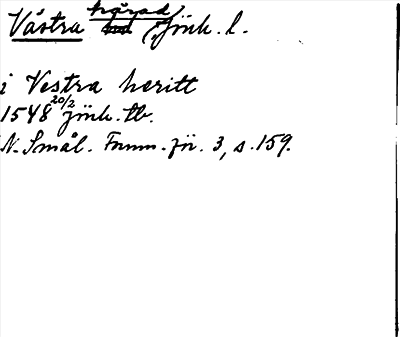 Västra härad, Jönk. l.
i Vestra heritt
1548 20/2 Jönk. tb.
N. Smål. Fornm.-för. 3, s. 159.